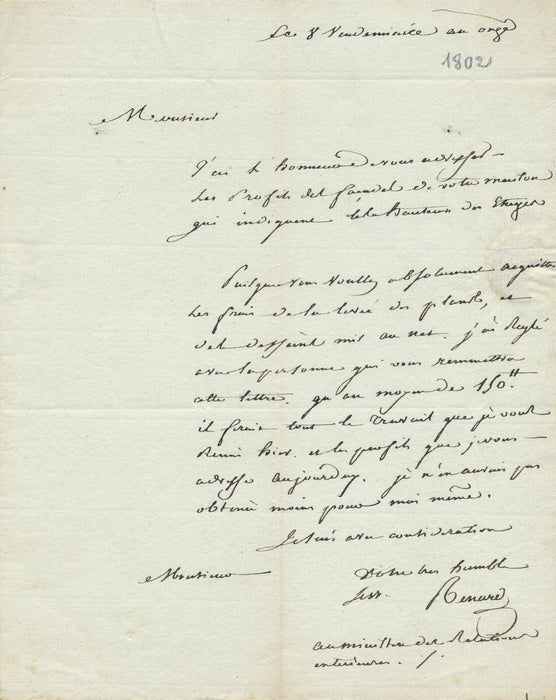 Le 8 Vendemiaire an onze
1802
Monsieur
J'ai l'honneur de vous adresser
Les Profils des facades de votre maison
qui indiquent la hauteur des Etages
Puisque vous voullez absolument acquitter
Les frais de la levée des plands, et
des desseins mis au net. j'ai Reglé
avec la personne qui vous remmettra
cette lettre. qu'au moyen de 150.tt
il feroit tout le Travail que je vous
Remis hier. et les profils que je vous
adresse aujourdhuy. je n'en aurois pas
obtenû moins pour moi même.
Je suis avec consideration
Monsieur
Votre tres humble
serv. Renard
au ministere des Relations
exterieures ./.